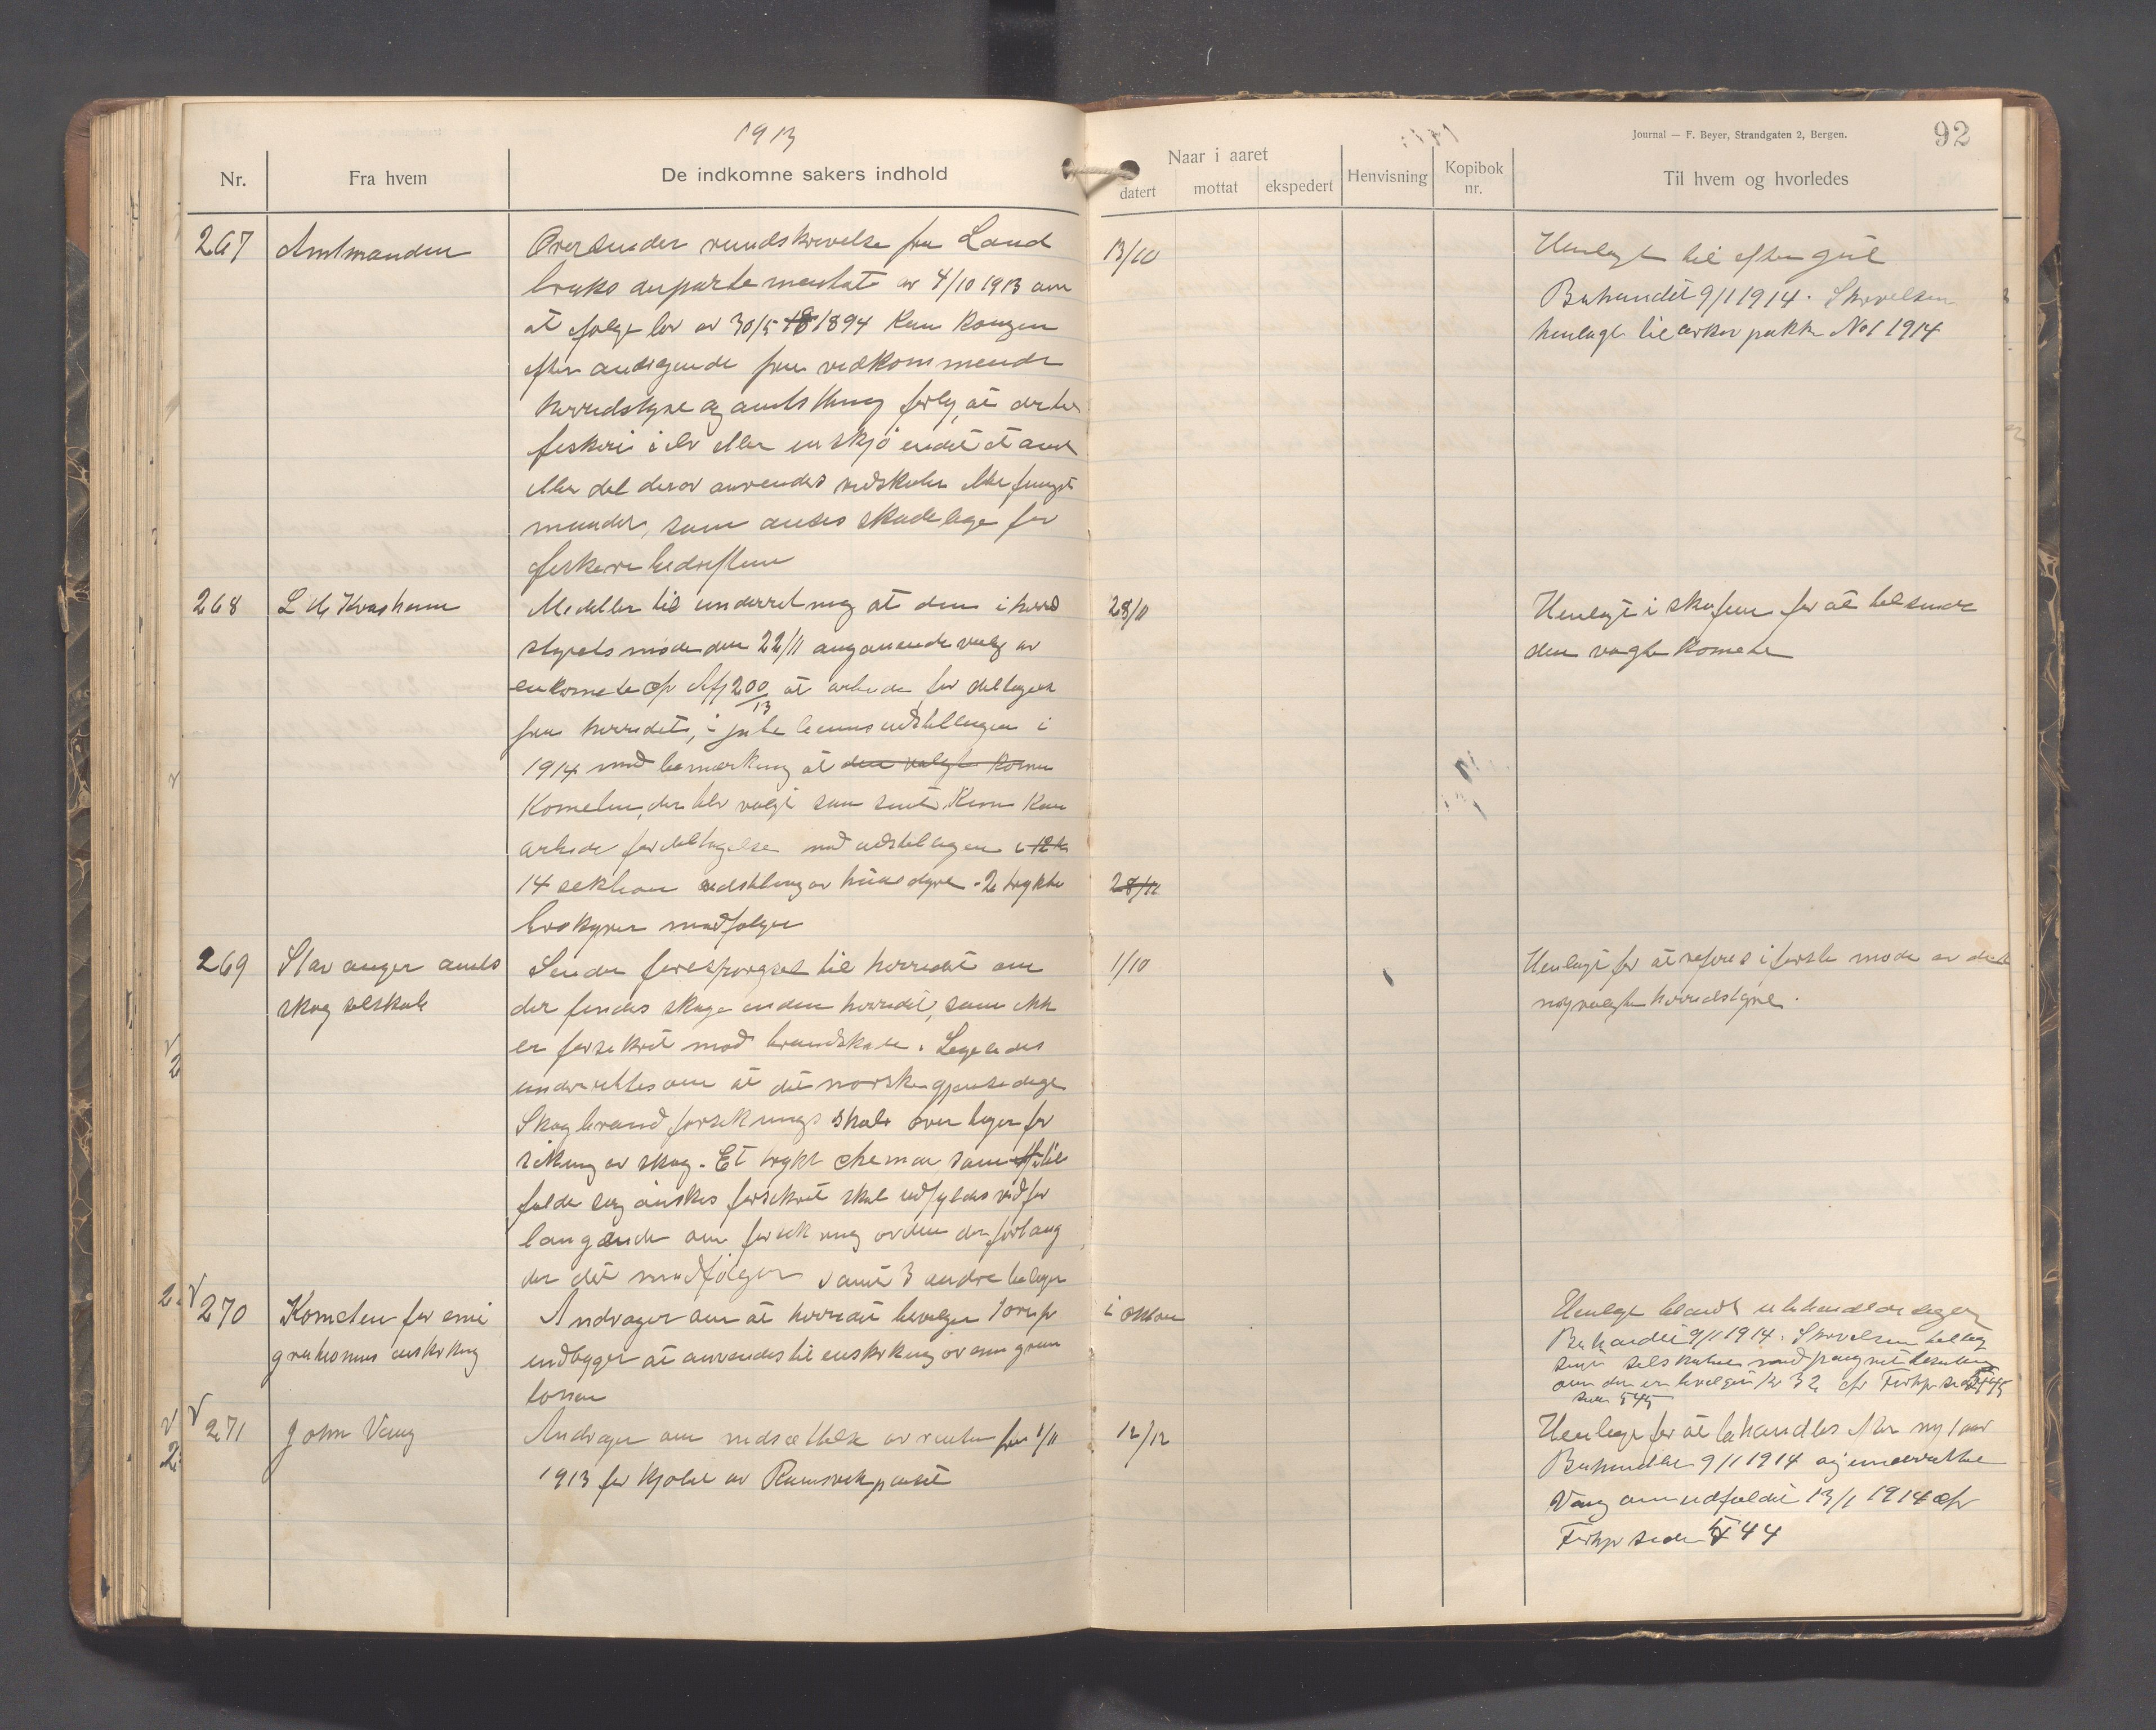 1913
Journal — F. Beyer, Strandgaten 2, Bergen.
92
Nr.
Fra hvem
De indkomne sakers indhold
Naar i aaret
datert
mottat
ekspedert
Henvisning
Kopibok nr.
Til hvem og hvorledes
267
Amtmanden
Oversender rundskrivelse fra Land
bruks departementet av 4/10 1913 om
at ifølge lov av 30/5 18 1894 kan kongen
efter andragende fra vedkommende
herredstyre og amtsthing forby, at der ved
fiskeri i elv eller innskjø endel et amt
eller del derav anvendes redskaber eller fangst
maader, som ansees skadelige for
fiskeribedriften
13/10
Henlagt til efter jul
Behandlet 9/1 1914. Skrivelsen
henlagt til arkiv pakke No 1 1914
268
L M Kvasheim
Meddeler til underretning at den i herred
styrets møde den 22/11 angaaende valg av
en komite cfr 200/13 at arbeide for deltagelse
fra herredet, i jubelæumsudstillingen i
1914 med bemærkning at den valgte komi
Komiteen, der blev valgt som sent kun kan
arbeide for deltagelse ved udstillingen i 12te
14 sektion udstilling av husdyr - 2 trykte
broskyrer medfølger
28/11
28/11
Henlagt i skuffen for at tilsende
den valgte komite
269
Stavanger amts
skogselskab
Sender forespørgsel til herredet om
der findes skoge inden herredet, som ikke
er forsikret mod brandskade. Ligeledes
underrettes om at det norske gjensidige
Skogbrandforsikringsskab overtager for
sikring av skog. Et trykt chema som i til
fælde seg ønskes forsikret skal udfyldes ved for
langende om forsikring orden der forlang
der det medfølger samt 3 andre bilager
1/10
Henlagt for at refereres i første møde av det
nyvalgte herredstyre.
270
Komiteen for emi
grationens indskrenkning
Andrager om at herredet bevilger 1 øre pr
indbygger at anvendes til indskrenkning av emigran
tionen
i oktober
Henlagt blandt ubehandlede sager
Behandlet 9/1 1914. Skrivelsen tilbag
sendt selskabet med paategnet beslutning
om der er bevilget kr 32 cfr Forhpr side 545
side 545
271
John Vaag
Andrager om nedsættelse av renten fra 1/11
1913 for kjøbet av Ramsvikparset
12/12
Henlagt for at behandles efter nytaar
Behandlet 9/1 1914 og underrettet
Vaag om udfaldet 13/1 1914 cfr
Forhpr side 544